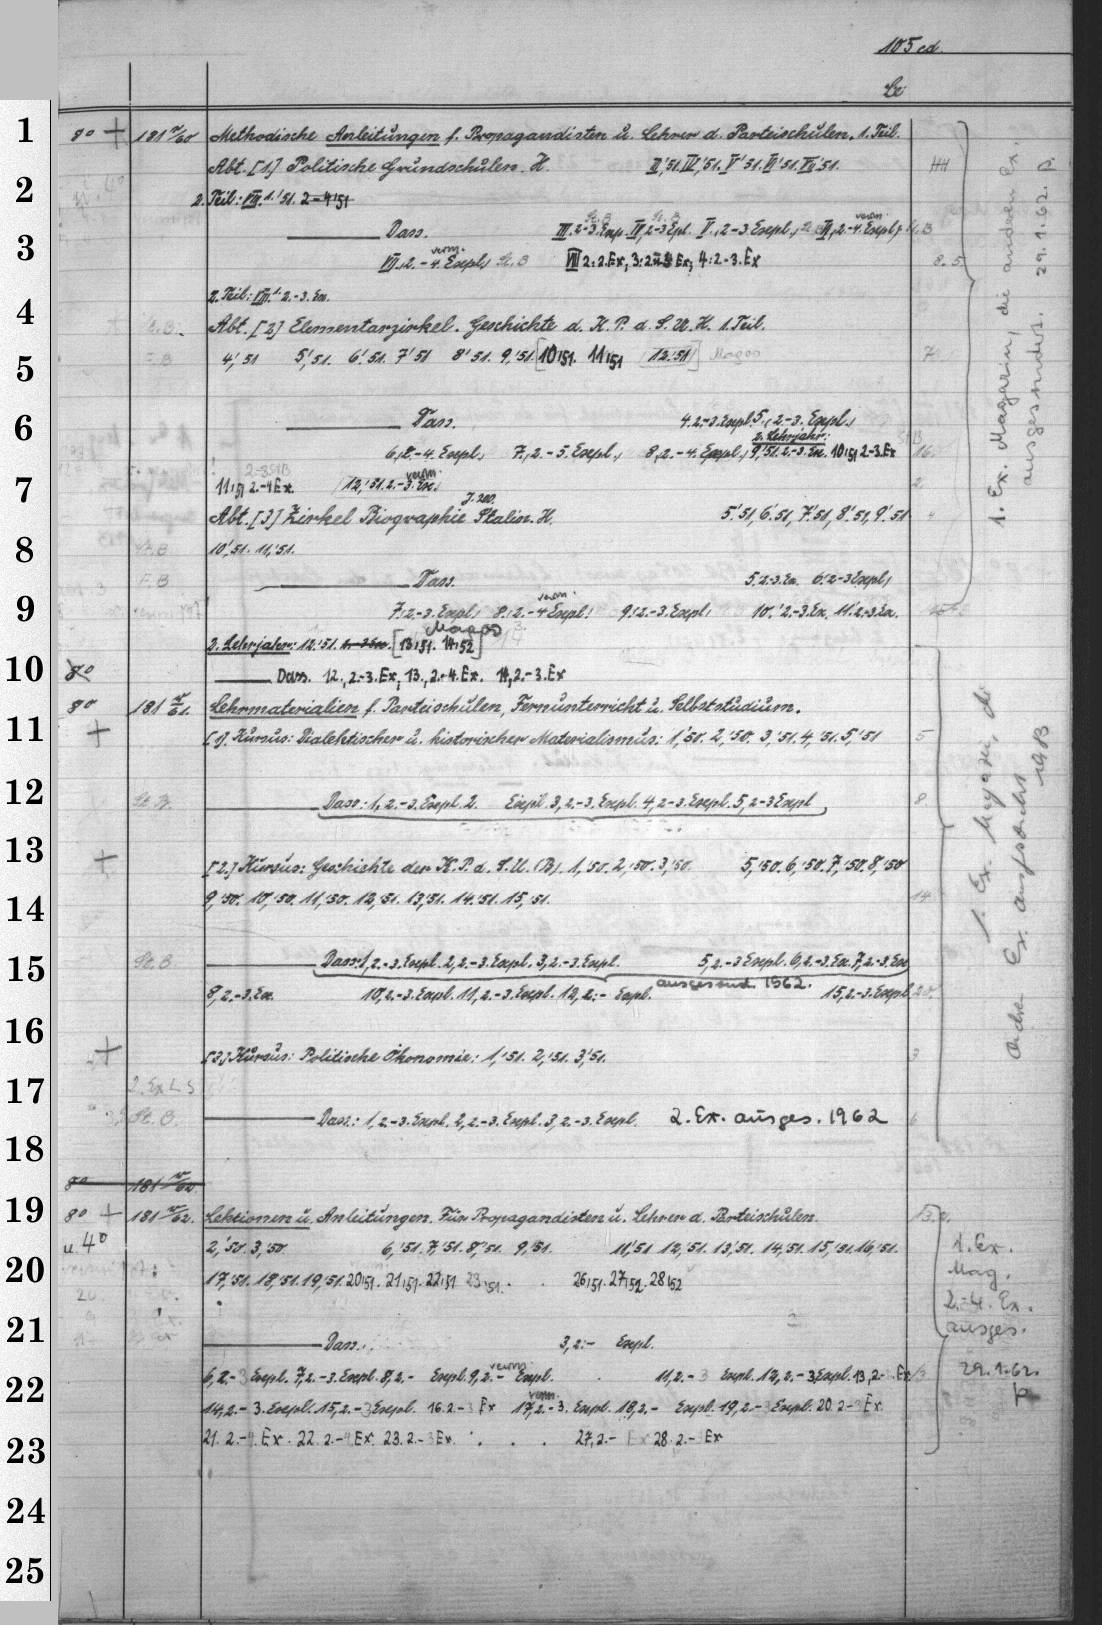 105 cd.
Le
1 8° + 181 r/60 Methodische Anleitungen f. Propagandisten u. Lehrer d. Parteischulen. 1. Teil.
Abt. [1] Politische Grundschulen. H. III'51. IV'51. V'51. VI'51. VII'51.
2 2. Teil: VIII.1.'51. 2-4'51
3 Dass. 2.-3. V., 2.-3. Expl., 2.-4. Expl., verm.
VII., 2.-4. Expl., verm. St. B VIII 2: 2. Ex, Ex, 4: 2.-3. Ex 8. 5.
2. Teil: VIII.1. 2.-3. Ex.
4 Abt. [2] Elementarzirkel. Geschichte d. K. P. d. S. U. H. 1. Teil.
5 4,'51 5,'51. 6,'51. 7,'51 8,'51. 9,'51. [10,51. 11,51 12.'51] Magas
6 Dass. 4. 2.-3. Expl. 5., 2.-3. Expl.,
2. Lehrjahr:
6., 2.-4. Expl., 7., 2.-5. Expl., 8., 2.-4. Expl., 9,'51. 2.-3. Ex. 10,51 2-3. Ex 16.
7 11,51 2.-4 Ex. 12,'51. 2.-3. Ex. verm. 2.
Abt. [3] Zirkel Biographie Stalin. H. 5,'51, 6,'51, 7,'51, 8,'51, 9,'51
8 10,'51. 11,'51.
Dass. 5. 2.-3. Ex. 6. 2.-3 Expl.,
9 7., 2.-3. Expl., 8., 2.-4 Expl., verm. 9., 2.-3. Expl., 10., 2.-3. Ex. 11. 2.-3. Ex.
2. Lehrjahr: 12,'51. [13,51. 14,52] Magas
10 8° Dass. 12., 2.-3. Ex, 13., 2.-4. Ex. 14, 2.-3. Ex
8° 181 r/61. Lehrmaterialien f. Parteischulen, Fernunterricht u. Selbststudium.
11 + [1.] Kursus: Dialektischer u. historischer Materialismus: 1,'50. 2,'50. 3,'51. 4,'51. 5,'51 5
12 St. B. Dass.: 1, 2.-3. Expl. 2. Expl. 3, 2.-3. Expl. 4, 2.-3. Expl. 5, 2-3 Expl 8.
13 + [2.] Kursus: Geschichte der K. P. d. S. U. (B). 1,'50. 2,'50. 3,'50. 5,'50. 6,'50. 7,'50. 8,'50
14 9,'50. 10,'50. 11,'50. 12,'51. 13,'51. 14.'51. 15,'51. 14.
15 St. B Dass.: 1, 2.-3. Expl. 2, 2.-3. Expl. 3, 2.-3. Expl. 5, 2.-3 Expl. 6, 2.-3. Ex. 7, 2.-3. Ex
ausgesond. 1962.
8, 2.-3. Ex. 10, 2.-3. Expl. 11, 2.-3. Expl. 12, 2.- Expl. 15, 2.-3. Expl. 20.
16 + [3.] Kursus: Politische Ökonomie: 1,'51. 2,'51. 3,'51. 3
17 2. Ex L S
St. B. Dass.: 1, 2.-3. Expl. 2, 2.-3. Expl. 3, 2.-3. Expl. 2. Ex. ausges. 1962 6
18 8° 181 r/62.
19 8° + 181 r/62. Lektionen u. Anleitungen. Für Propagandisten u. Lehrer d. Parteischulen.
u. 4° 2,'50. 3,'50. 6,'51. 7,'51. 8,'51. 9,'51. 11,'51 12,'51. 13,'51. 14,'51. 15,'51. 16,'51.
20 17,'51. 18,'51. 19,'51. 20,51. 21,51. 22,51 23,51. 26,51. 27,52. 28,52
21 Dass. 3, 2.- Expl.
22 6, 2.-3 Expl. 7, 2.-3. Expl. 8, 2.- Expl. 9, 2.- Expl. verm. 11, 2.-3 Expl. 12, 2.-3, Expl. 13, 2.- Ex
14, 2.-3. Expl. 15, 2.-3 Expl. 16. 2.-3 Ex 17, 2.-3. Expl. verm. 18, 2.- Expl. 19, 2.-3 Expl. 20. 2-3 Ex
23 21. 2.-4. Ex. 22. 2.-4 Ex. 23. 2.-3 Ex. 27, 2.- Ex 28. 2.- Ex
24
25
1. Ex. Magazin, die anderen Ex.
ausgesondert. 29.1.62.
1. Ex Magazin, di
andre Ex. 1983
1. Ex.
Mag.
2.-4. Ex.
ausges.
29.1.62.